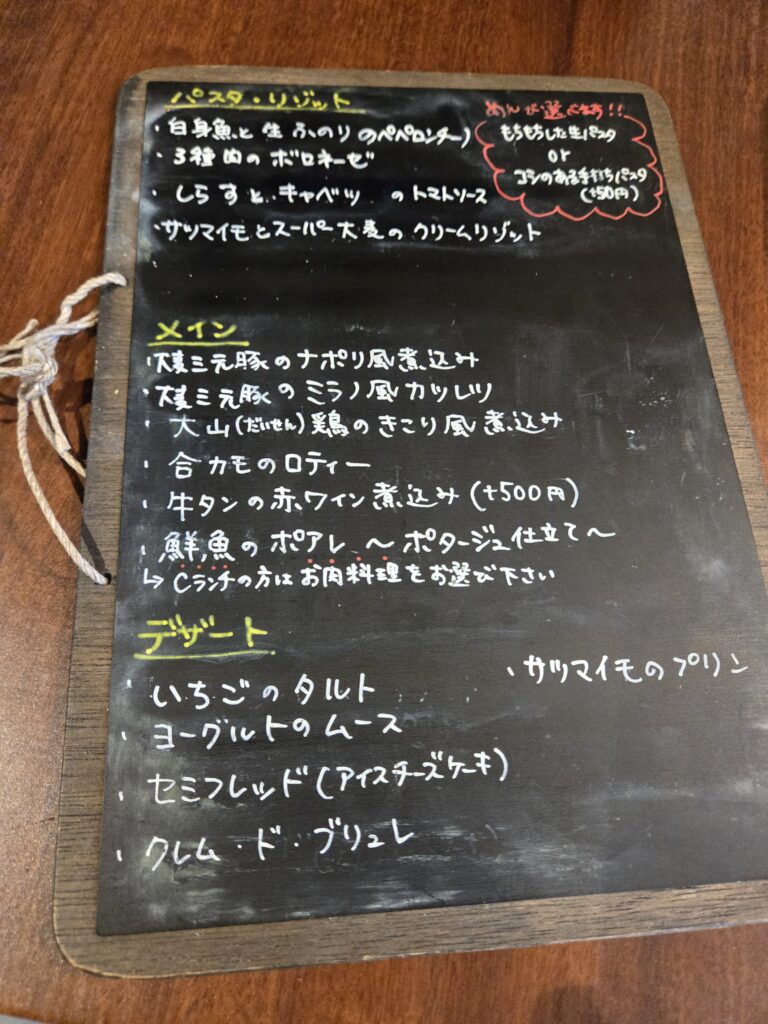 パスタ・リゾット
・白身魚と生ふのりのペペロンチーノ
・3種肉のボロネーゼ
・しらすと、キャベツ のトマトソース
・サツマイモとスーパー大麦のクリームリゾット
めんが選べます!!
もちもちした生パスタ
or
コシのある手打ちパスタ
(+50円)
メイン
・三元豚のナポリ風煮込み
・三元豚のミラノ風カツレツ
・大山(だいせん)鶏のきこり風煮込み
・合カモのロティー
・牛タンの赤ワイン煮込み(+500円)
・鮮魚のポアレ 〜ポタージュ仕立て〜
↳Cランチの方はお肉料理をお選び下さい
デザート
・いちごのタルト
・ヨーグルトのムース
・セミフレッド(アイスチーズケーキ)
・クレム・ド・ブリュレ
・サツマイモのプリン